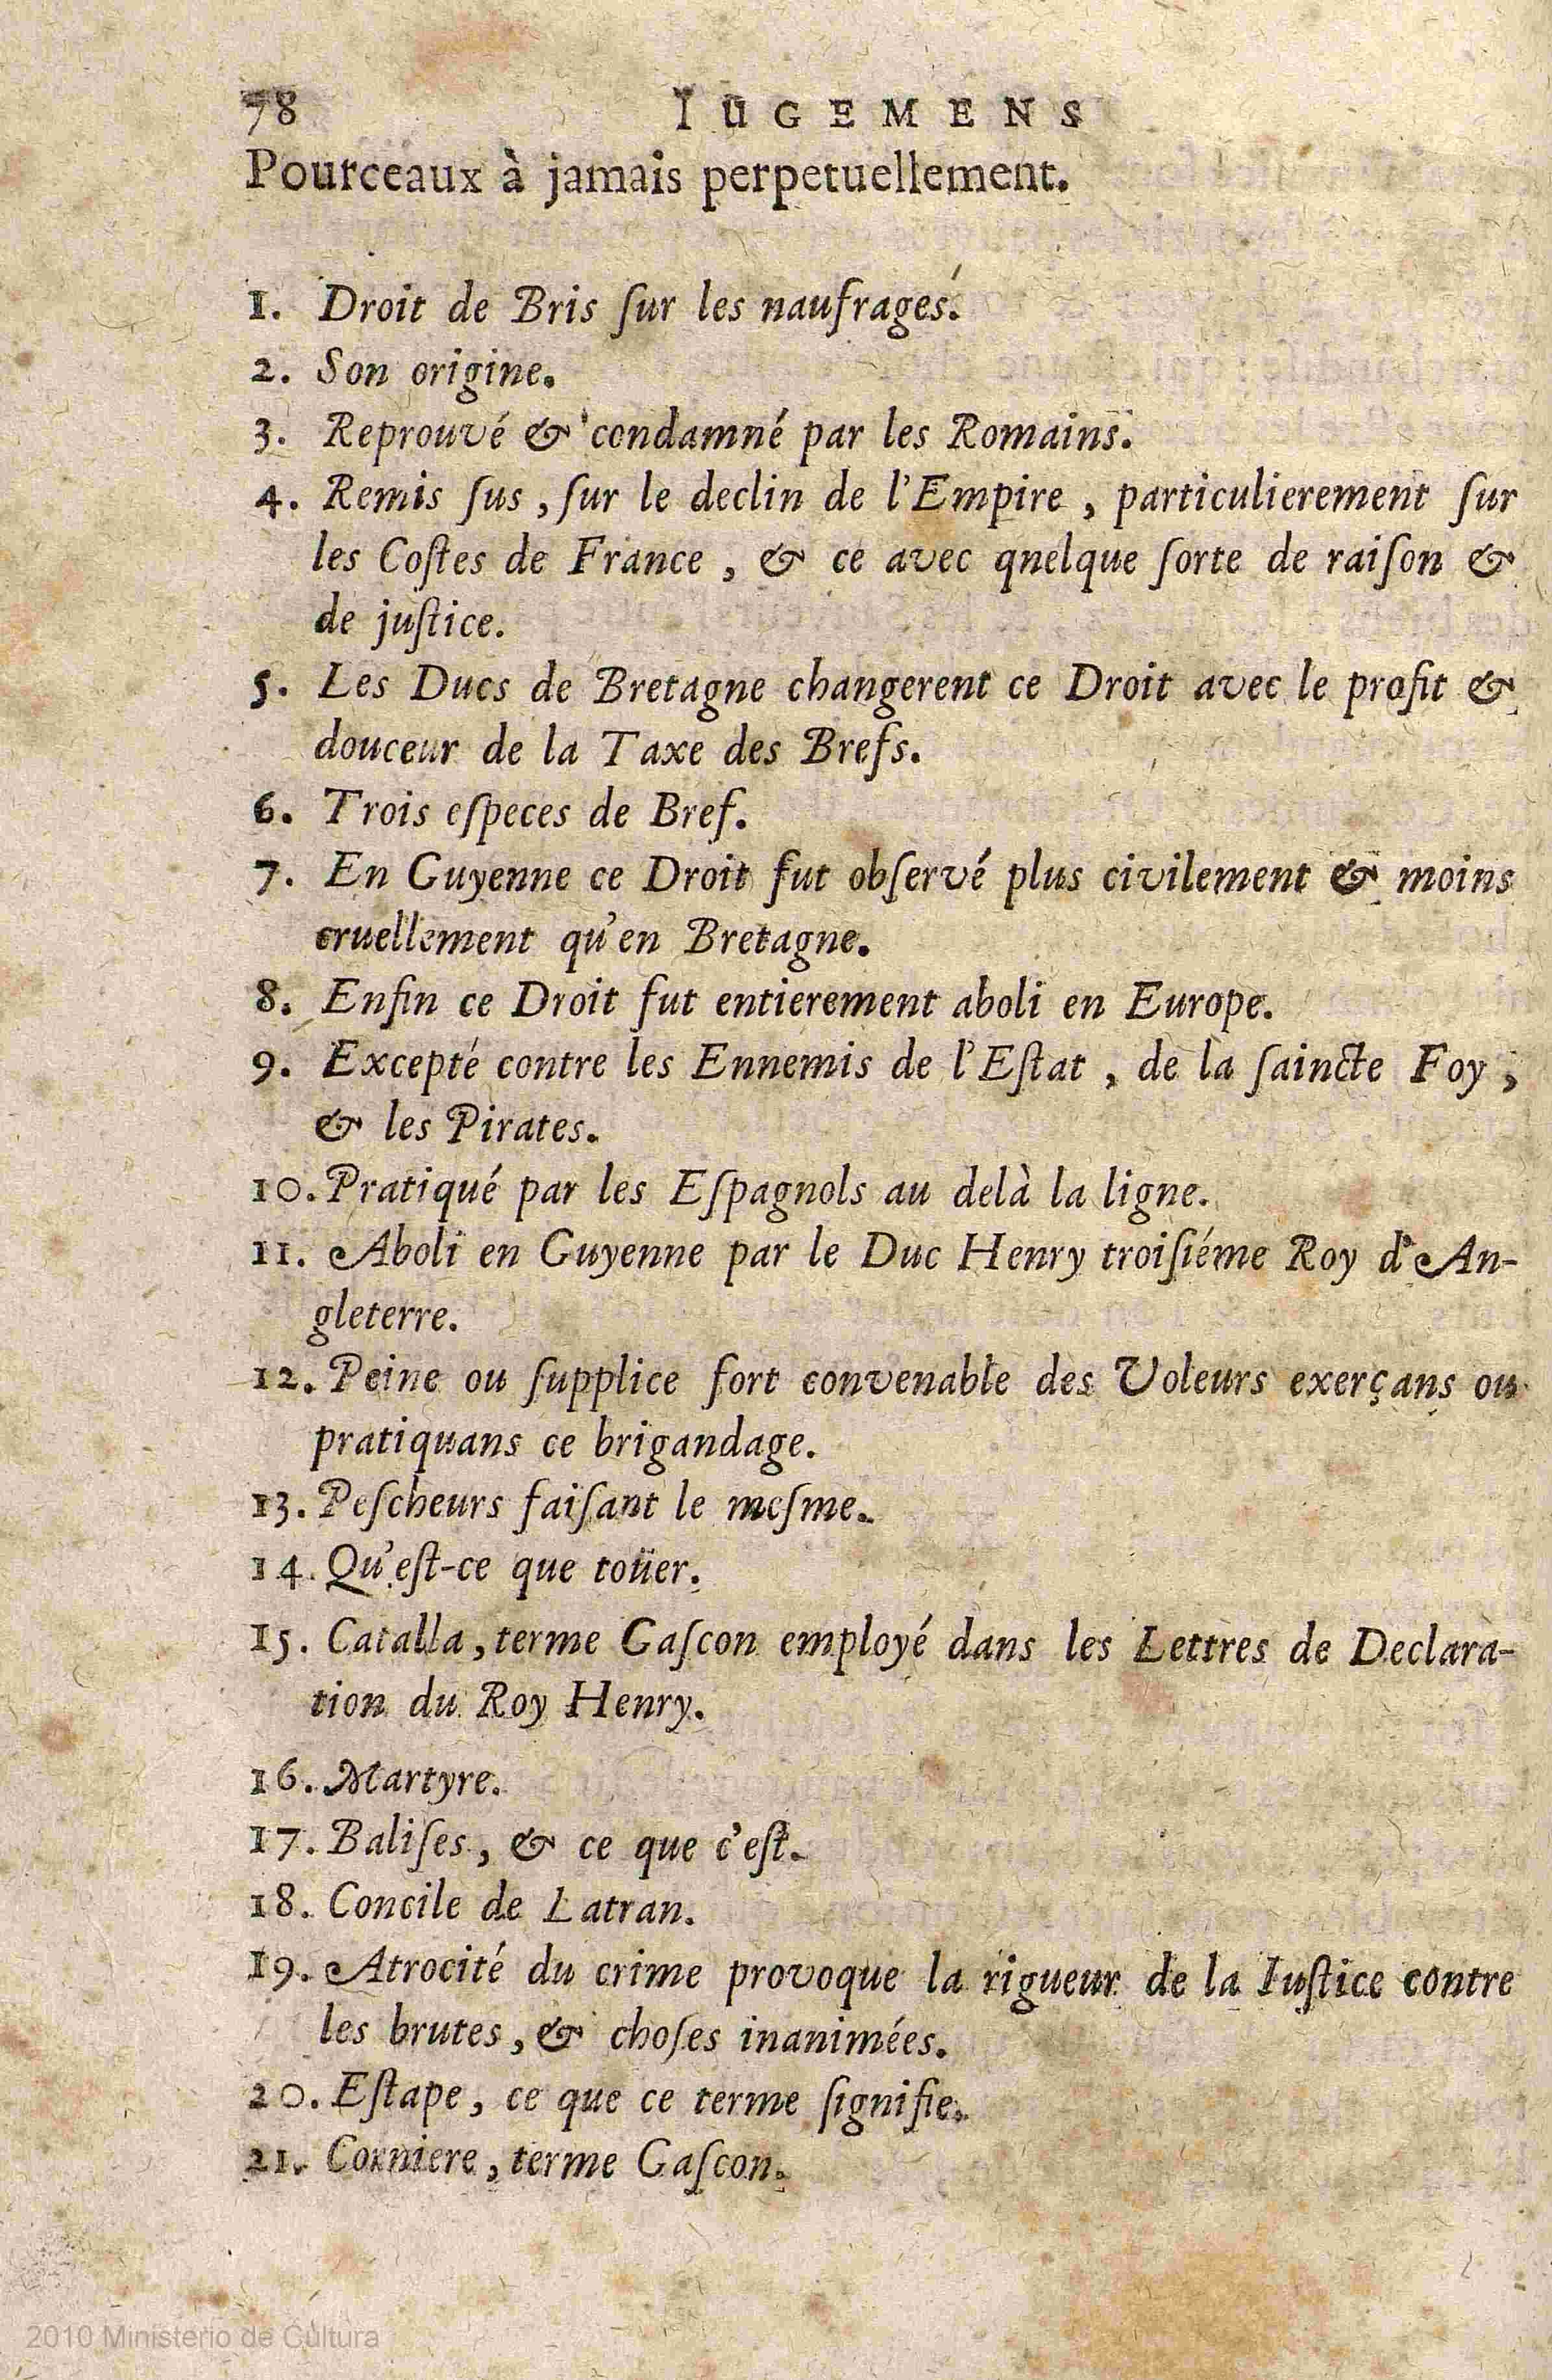 78 IUGEMENS
Pourceaux à jamais perpetuellement.
1. Droit de Bris ſur les naufragés.
2. Son origine.
3. Reprouvé & condamné par les Romains.
4. Remis ſus, ſur le declin de l'Empire, particulierement ſur
les Coſtes de France, & ce avec qnelque ſorte de raiſon &
de juſtice.
5. Les Ducs de Bretagne changerent ce Droit avec le profit &
douceur de la Taxe des Brefs.
6. Trois eſpeces de Bref.
7. En Guyenne ce Droit fut obſervé plus civilement & moins
cruellement qu'en Bretagne.
8. Enfin ce Droit fut entierement aboli en Europe.
9. Excepté contre les Ennemis de l'Eſtat, de la ſaincte Foy,
& les Pirates.
10. Pratiqué par les Eſpagnols au delà la ligne.
11. Aboli en Guyenne par le Duc Henry troiſiéme Roy d'An-
gleterre.
12. Peine ou ſupplice fort convenable des Voleurs exerçans ou
pratiquans ce brigandage.
13. Peſcheurs faiſant le meſme.
14. Qu'eſt-ce que toüer.
15. Catalla, terme Gaſcon employé dans les Lettres de Declara-
tion du Roy Henry.
16. Martyre.
17. Baliſes, & ce que c'eſt.
18. Concile de Latran.
19. Atrocité du crime provoque la rigueur de la Iuſtice contre
les brutes, & choſes inanimées.
20. Eſtape, ce que ce terme ſignifie.
21. Corniere, terme Gaſcon.
2010 Ministerio de Cultura